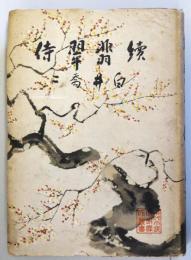 續翡翠侍
白井喬二